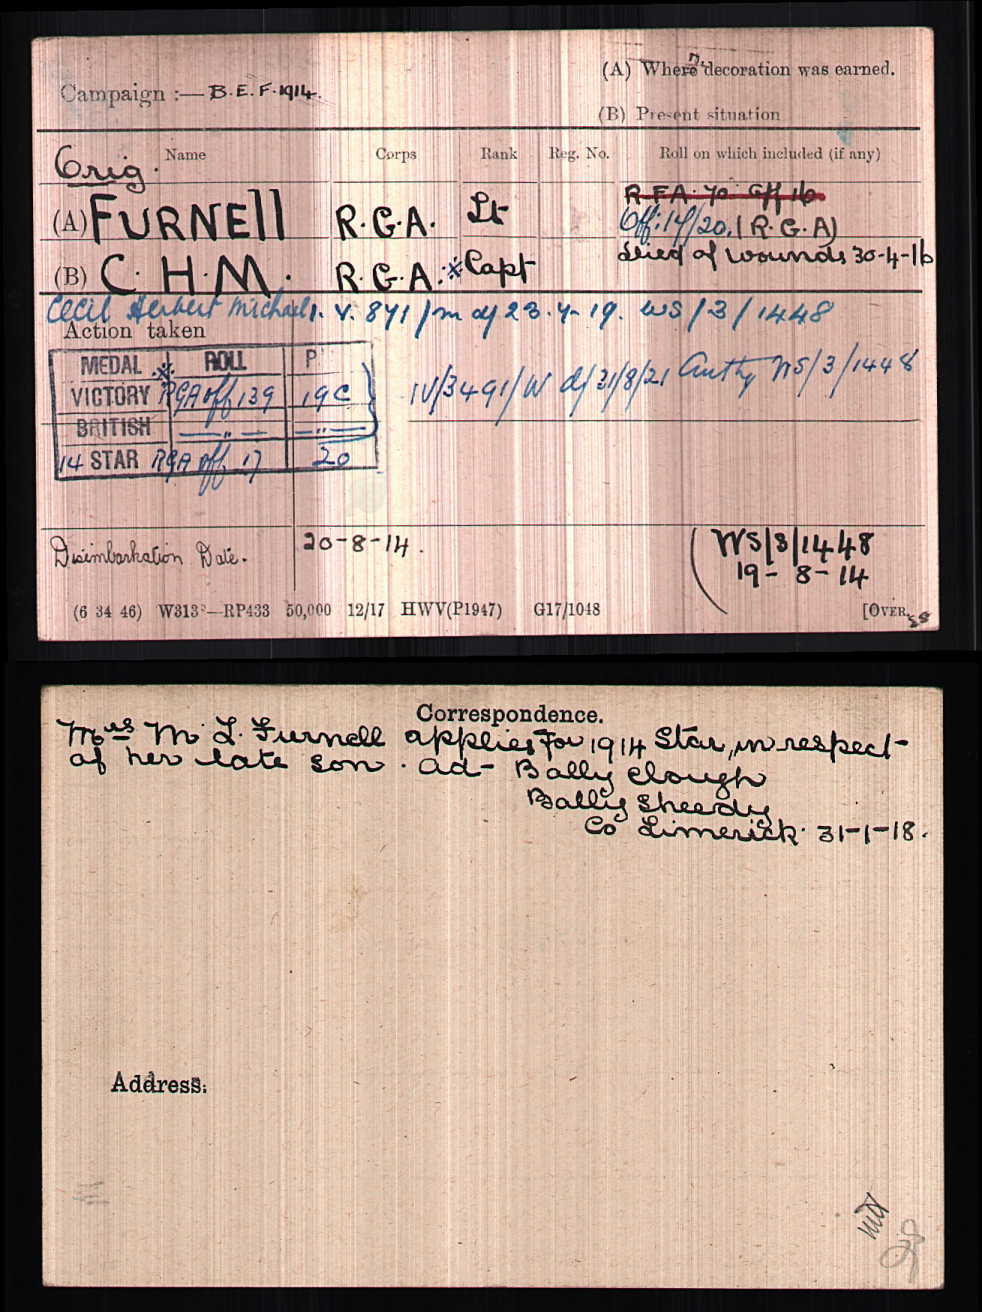 (A) When decoration was earned.
Campaign :— B.E.F. 1914.
(B) Present situation
Orig. Name Corps Rank Reg. No. Roll on which included (if any)
R.F.A. 70 Off 16
(A) FURNEll R.G.A. Lt Off.17/20. (R.G.A)
died of wounds 30-4-16
(B) C. H. M. R.G.A. * Capt
Cecil Herbert Michael I.V. 871/m d/ 23.4-19. WS/3/1448
Action taken
MEDAL * ROLL P
VICTORY RGA off 139 19C IV/3491/W d/31/8/21 Authy WS/3/1448
BRITISH — " — — " —
14 STAR RGA off 17 20
Disimbarkation Date. 20-8-14. WS/3/1448
19-8-14
(6 34 46) W3138—RP433 50,000 12/17 HWV(P1947) G17/1048 [OVER.
Correspondence.
Mrs M. L. Furnell applies for 1914 Star, in respect
of her late son. ad- Bally clough
Bally sheedy
Co Limerick. 31-1-18.
Address: